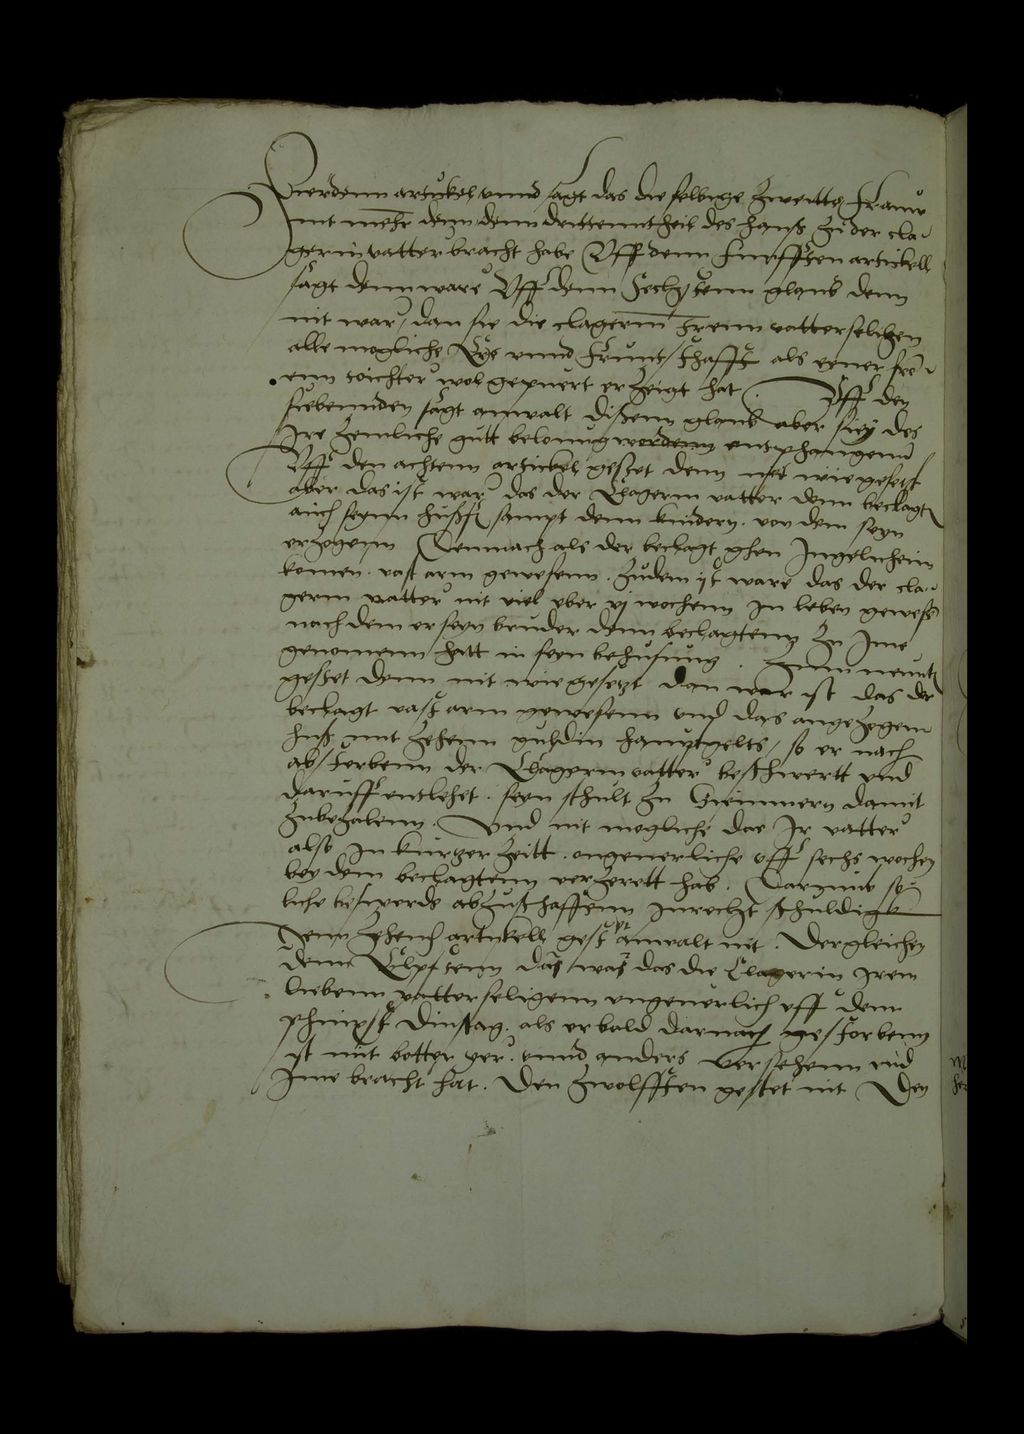 Vierdenn artickel, unnd sagt das die selbige zweitte frauw
nit mehr denn denn drittenntheil des hauß zu der cla-
gerin vatter bracht habe Uff denn funfften artickell
sagt denn ware Uff denn sechstenn glaub denn
nit war, dan sie die clagerin irenn vatter selichen
alle mogliche Ere unnd fruntschafft als einer fro-
enn doichter wol gepuert erzeigt hat. Uff den
siebennden sagt anwalt dißenn glaub aber sieg des
Ire zemliche gutt belonung wordenn entphangenn
Uff den achtenn artickel gestet denn nit wie gesetzt
aber das ist war das der Clagerin vatter denn beclagt
auch seynn hußf sampt denn kindern. von dem seyn
erzogenn Dennach als der beclagt ghen Ingelnheim
komen. vast arm gewesenn. zudem ist ware das der cla-
gerin vatter nit viel uber vj wochenn im leben gewest
nach dem er seyn bruder denn beclagtenn zu Ime
genomenn hatt in seyn behusung. Zum neunt
gestet denn nit wie gesetzt dan war ist das der
beclagt vast arm gewesenn und das angezogenn
huß mit zehenn guldin hauptgelts, so er nach
absterbenn der Clagerin vatter beschwertt und
daruff entlehet. seyn schult zu Sweimmern damit
zubezalenn. Und nit mogliche das Ir vatter
also in kurtzer zeitt. ongeuerliche uff sechs wochen
bey dem beclagtenn verzerett hab. Darumb so-
liche beswerde abzuschaffenn Inrecht schuldigk
Denn zehend artickell gest't anwalt nit. Dergleichen
denn Elfftenn das was das die Clagerin Irem
liebenn vatter seligenn ungeuerlich uff dem
phinxst dinstag. als er bald darnach gestorbenn
ist mit botter eyer. unnd anders versehenn und
Ime bracht hat. Den zwolfften gestet nit Den